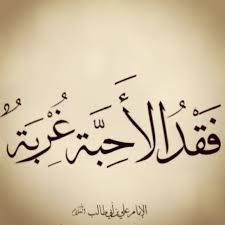 فَقْدُ الأَحِبَّة غُرْبَةٌ
الإمام علي بن أبي طالب